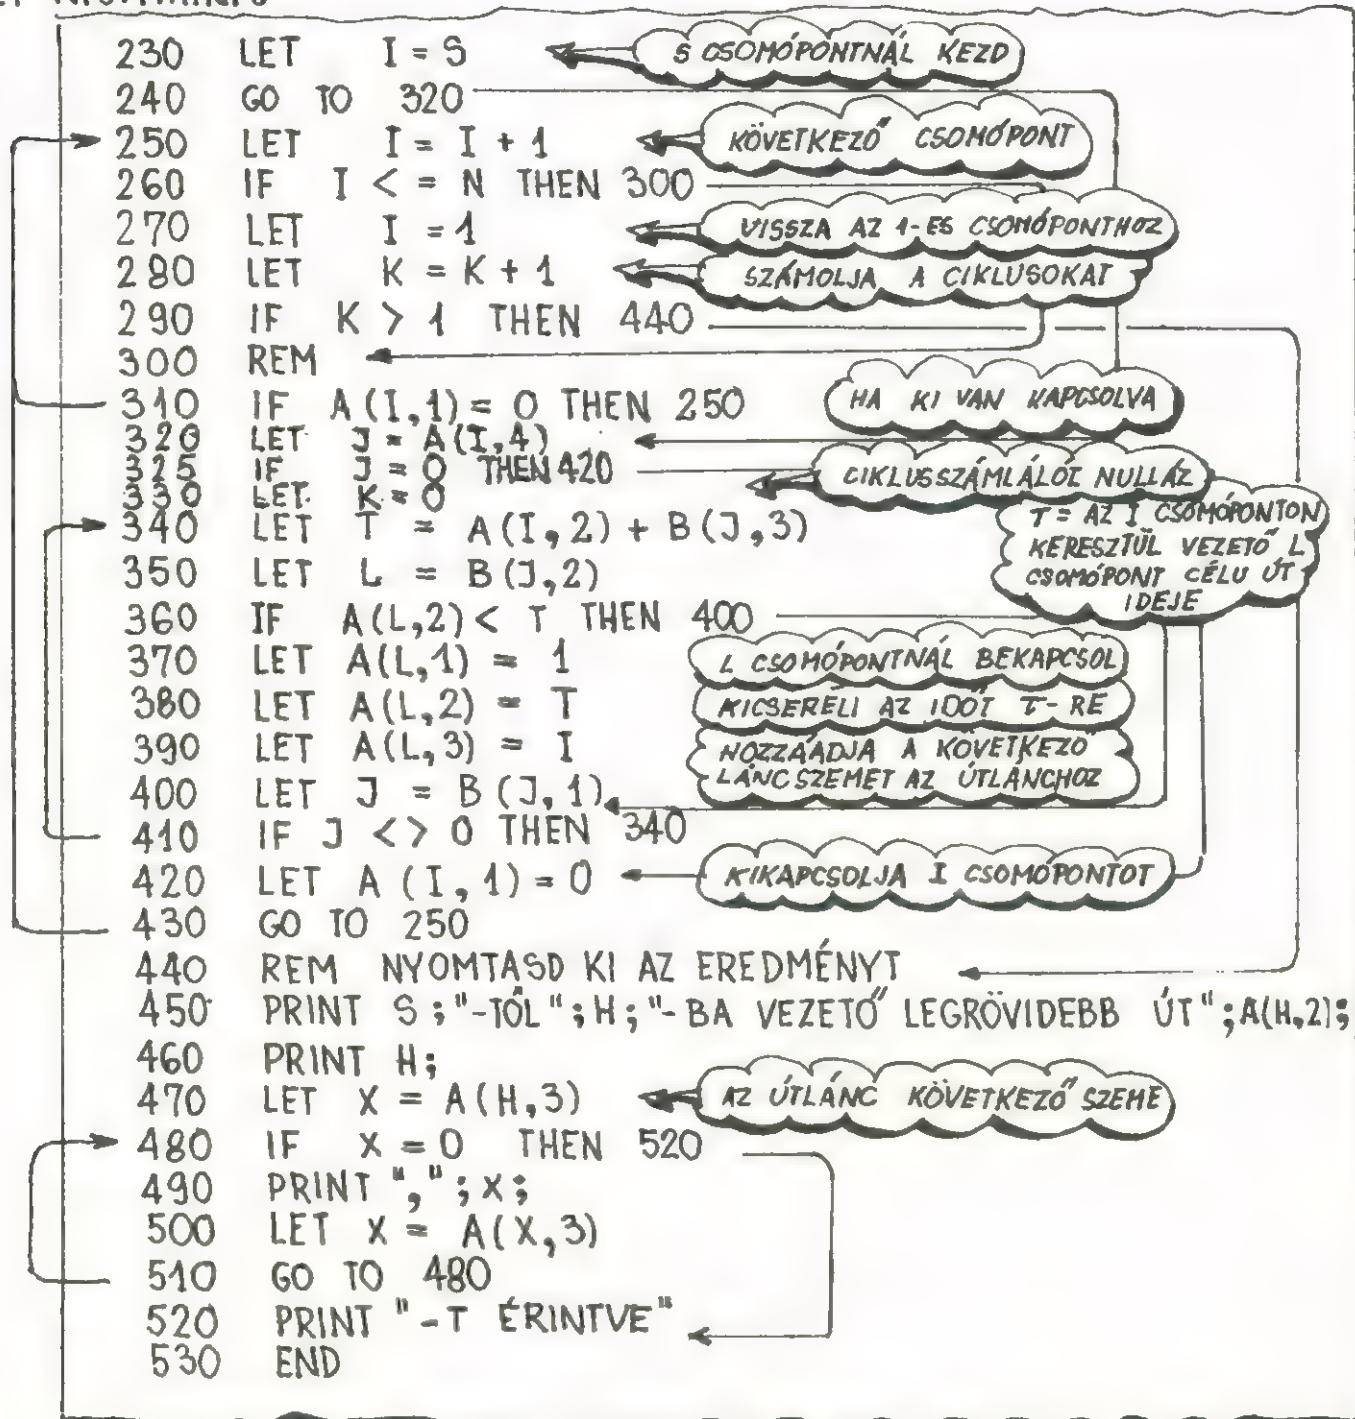 230 LET I = S S CSOMÓPONTNÁL KEZD
240 GO TO 320
250 LET I = I + 1 KÖVETKEZŐ CSOMÓPONT
260 IF I < = N THEN 300
270 LET I = 1 VISSZA AZ 1-ES CSOMÓPONTHOZ
280 LET K = K + 1 SZÁMOLJA A CIKLUSOKAT
290 IF K > 1 THEN 440
300 REM
310 IF A (I,1) = 0 THEN 250 HA KI VAN KAPCSOLVA
320 LET J = A(I,4)
325 IF J = 0 THEN 420
330 LET K = 0 CIKLUSSZÁMLÁLÓT NULLÁZ
340 LET T = A(I,2) + B(J,3)
T = AZ I CSOMÓPONTON
KERESZTÜL VEZETŐ L
CSOMÓPONT CÉLU ÚT
IDEJE
350 LET L = B(J,2)
360 IF A(L,2) < T THEN 400
370 LET A(L,1) = 1 L CSOMÓPONTNÁL BEKAPCSOL
380 LET A(L,2) = T KICSERÉLI AZ IDŐT T-RE
390 LET A(L,3) = I HOZZÁADJA A KÖVETKEZŐ
LÁNCSZEMET AZ ÚTLÁNCHOZ
400 LET J = B(J,1)
410 IF J <> 0 THEN 340
420 LET A (I,1) = 0 KIKAPCSOLJA I CSOMÓPONTOT
430 GO TO 250
440 REM NYOMTASD KI AZ EREDMÉNYT
450 PRINT S;"-TŐL";H;"-BA VEZETŐ LEGRÖVIDEBB ÚT";A(H,2);
460 PRINT H;
470 LET X = A(H,3) AZ ÚTLÁNC KÖVETKEZŐ SZEME
480 IF X = 0 THEN 520
490 PRINT ",";X;
500 LET X = A(X,3)
510 GO TO 480
520 PRINT "-T ÉRINTVE"
530 END